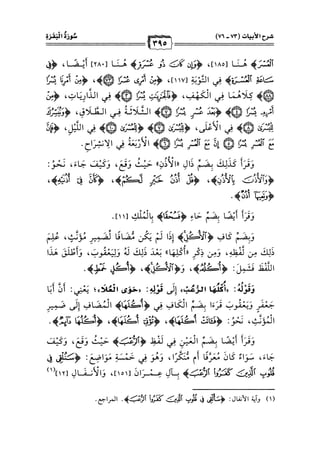 سُورَةُ الْبَقَرَةِ
شرح الأبيات (٧٣ - ٧٦)
٣٩٥
﴿الْعُسْرَ﴾ هُنَا [١٨٥]، ﴿وَإِن كَانَ ذُو عُسْرَةٍ﴾ هُنَا [٢٨٠] أَيْضًا، ﴿فِى
سَاعَةِ الْعُسْرَةِ﴾ فِي التَّوْبَةِ [١١٧]، ﴿مِنْ أَمْرِى عُسْرًا﴾، ﴿مِنْ أَمْرِنَا يُسْرًا﴾
كِلَاهُمَا فِي الْكَهْفِ، ﴿فَالْجَٰرِيَٰتِ يُسْرًا﴾ فِي الذَّارِيَاتِ، ﴿مِنْ
أَمْرِهِ يُسْرًا﴾ ﴿بَعْدَ عُسْرٍ يُسْرًا﴾ الثَّلَاثَةُ فِي الطَّلَاقِ، ﴿وَنُيَسِّرُكَ
لِلْيُسْرَىٰ﴾ فِي الْأَعْلَى، ﴿لِلْيُسْرَىٰ﴾ ﴿لِلْعُسْرَىٰ﴾ فِي اللَّيْلِ، ﴿فَإِنَّ
مَعَ الْعُسْرِ يُسْرًا﴾ ﴿إِنَّ مَعَ الْعُسْرِ يُسْرًا﴾ الْأَرْبَعَةُ فِي الانشِرَاحِ.
وَقَرَأَ كَذَلِكَ بِضَمِّ ذَالِ «الْأُذُنِ» حَيْثُ وَقَعَ، وَكَيْفَ جَاءَ، نَحْوُ:
﴿وَالْأُذُنَ بِالْأُذُنِ﴾، ﴿قُلْ أُذُنُ خَيْرٍ لَّكُمْ﴾، ﴿كَأَنَّ فِى أُذُنَيْهِ﴾،
﴿وَتَعِيَهَا أُذُنٌ﴾.
وَقَرَأَ أَيْضًا بِضَمِّ حَاءِ ﴿فَسُحُقًا﴾ بِالْمُلْكِ [١١].
وَبِضَمِّ كَافِ ﴿الْأُكُلِ﴾ إِذَا لَمْ يَكُنْ مُضَافًا لِضَمِيرٍ مُؤَنَّثٍ، عُلِمَ
ذَلِكَ مِنْ لَفْظِهِ، وَمِنْ ذِكْرِ «أُكْلِهَا» بَعْدَ ذَلِكَ لَهُ وَلِيَعْقُوبَ، وَأَطْلَقَ هَذَا
اللَّفْظَ فَشَمِلَ: ﴿أُكُلُهُۥ﴾، وَ﴿الْأُكُلِ﴾، وَ﴿أُكُلٍ خَمْطٍ﴾.
وَقَوْلُهُ: «أُكْلُهَا الرُّعْبُ» إِلَى قَوْلِهِ: «حَوَى الْعُلَا»؛ يَعْنِي: أَنَّ أَبَا
جَعْفَرٍ وَيَعْقُوبَ قَرَءَا بِضَمِّ الْكَافِ فِي ﴿أُكُلَهَا﴾ الْمُضَافِ إِلَى ضَمِيرِ
الْمُؤَنَّثِ، نَحْوُ: ﴿فَـَٔاتَتْ أُكُلَهَا﴾، ﴿تُؤْتِىٓ أُكُلَهَا﴾، ﴿أُكُلُهَا دَآئِمٌ﴾.
وَقَرَأَ أَيْضًا بِضَمِّ الْعَيْنِ فِي لَفْظِ ﴿الرُّعُبِ﴾ حَيْثُ وَقَعَ، وَكَيْفَ
جَاءَ، سَوَاءً كَانَ مُعَرَّفًا أَمْ مُنَكَّرًا، وَهُوَ فِي خَمْسَةِ مَوَاضِعَ: ﴿سَنُلْقِى فِى
قُلُوبِ الَّذِينَ كَفَرُوا الرُّعُبَ﴾ بِآلِ عِمْرَانَ [١٥١]، وَالْأَنْفَالِ [١٢] (١)
(١) وآية الأنفال: ﴿سَأُلْقِى فِى قُلُوبِ الَّذِينَ كَفَرُوا الرُّعُبَ﴾. المراجع.